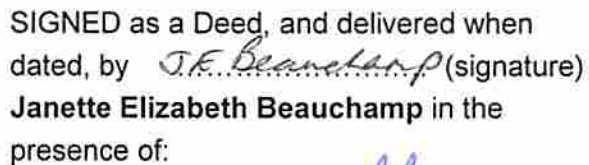 SIGNED as a Deed, and delivered when
dated, by J.E. Beauchamp (signature)
Janette Elizabeth Beauchamp in the
presence of: